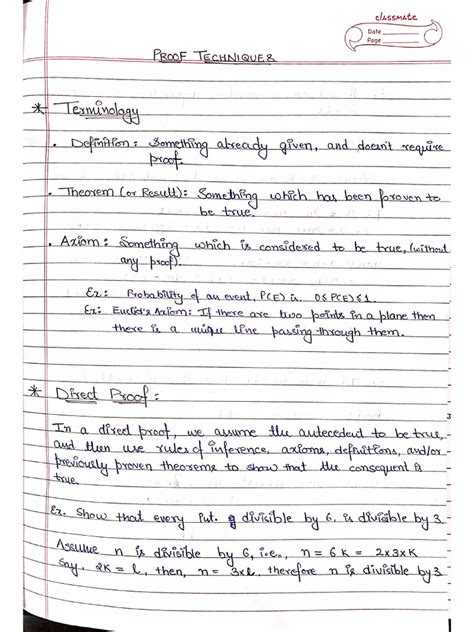 classmate
Date
Page
PROOF TECHNIQUES
* Terminology
. Definition: Something already given, and doesn't require
proof.
. Theorem (or Result): Something which has been proven to
be true.
. Axiom: Something which is considered to be true, (without
any proof).
Ex: Probability of an event, P(E) is 0≤P(E)≤1.
Ex: Euclid's Axiom: If there are two points in a plane then
there is a unique line passing through them.
* Direct Proof:
In a direct proof, we assume the antecedent to be true,
and then use rules of inference, axioms, definitions, and/or
previously proven theorems to show that the consequent is
true.
Ex. Show that every int. divisible by 6, is divisible by 3
Assume n is divisible by 6, i.e., n = 6K = 2x3xK
Say, 2K = l, then, n = 3xl, therefore n is divisible by 3